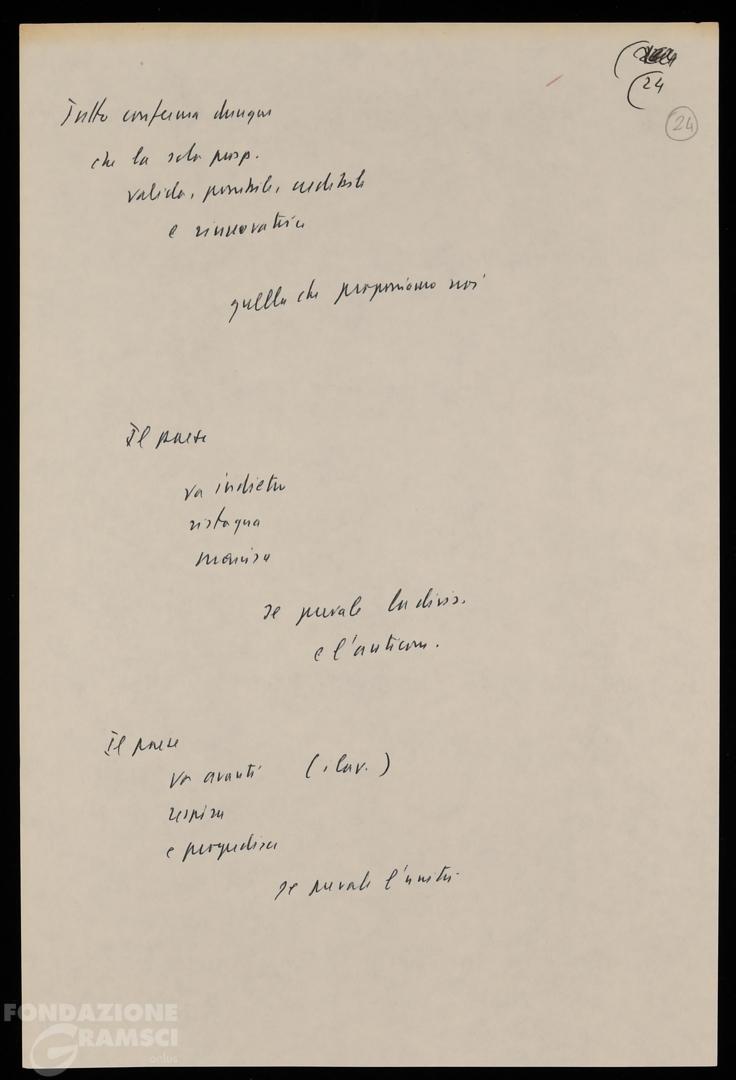 (24
24
Tutto conferma dunque
che la sola prosp.
valida, possibile, credibile
e rinnovatrice
quella che proponiamo noi
Il paese
va indietro
ristagna
se prevale la divis.
e l'anticom.
Il paese
va avanti (i lav.)
respira
e progredisce
se prevale l'unità.
FONDAZIONE
GRAMSCI
onlus